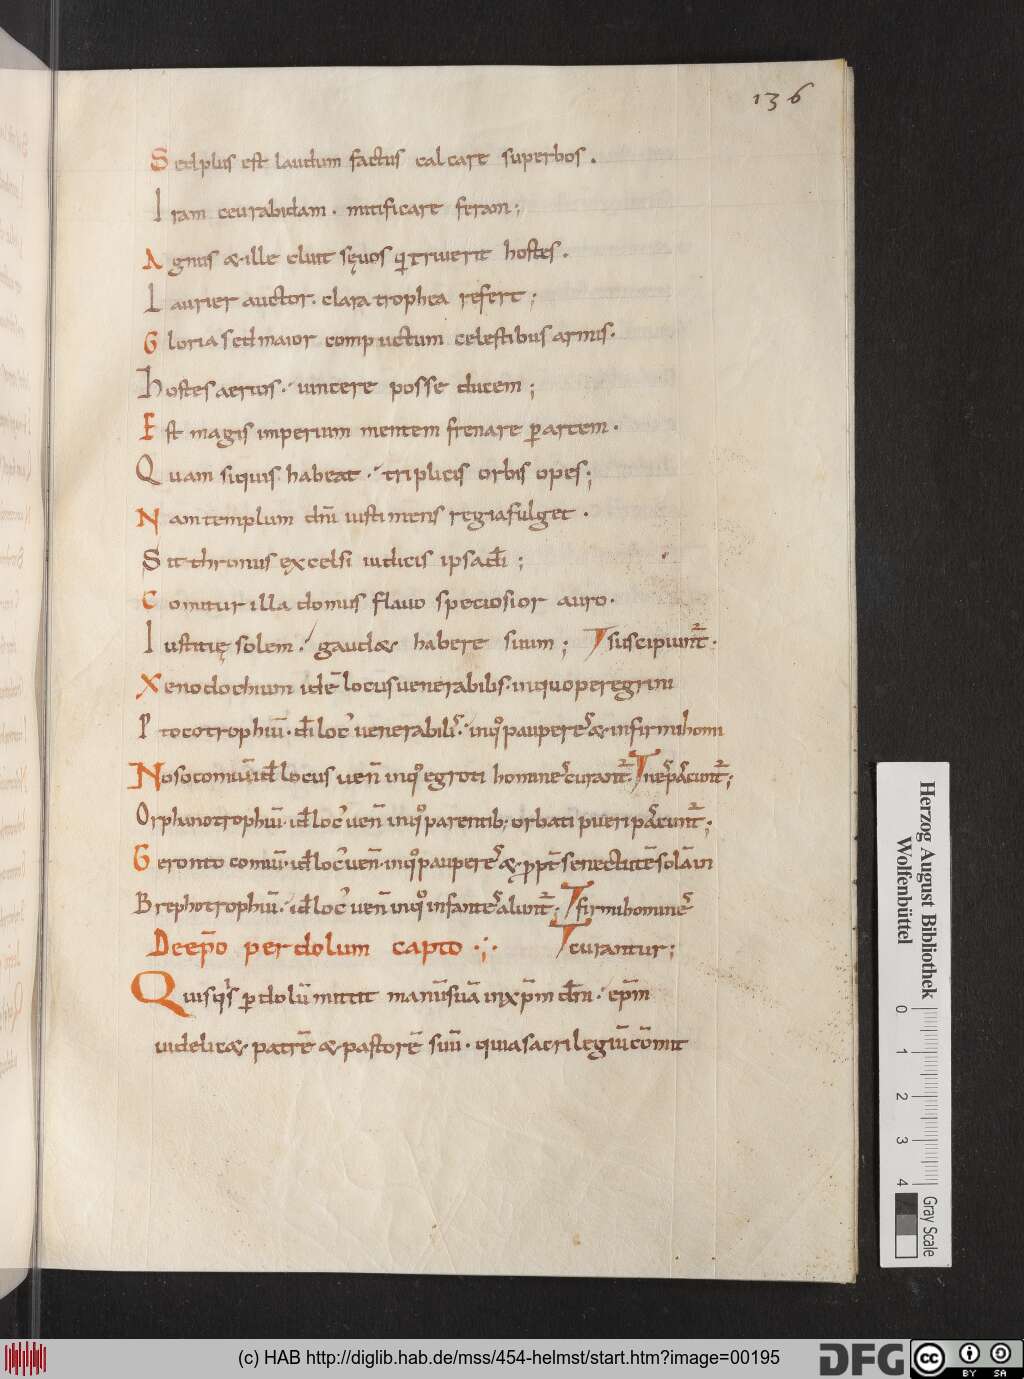 136
Sedplus est laudum factus calcare superbos.
Iram ceurabidam. mitificare feram;
Agnus & ille cluit sęvos qui triverit hostes.
Laurier auctor. clara trophea refert;
Gloria sed maior comp uctum celestibus armis.
hostes aerios. vincere posse ducem;
Est magis imperium mentem frenare per artem.
Quam siquis habeat. triplicis orbis opes;
Nam templum dn̄i iusti mens regia fulget.
Sit thronus excelsi iudicis ipsa dī;
Comitur illa domus flavo speciosior auro.
Iustitię solem. gaud& habere suum; suscipiunt̄.
Xenodochium idē locus venerabilis. inquo peregrini
Ptocotrophiū. id̄ loc' venerabilis. inq̊ paupere & infirmi homi
Nosocomiū id̄ locus ven̄ inq̊ egroti homine curant̄. ne pascunt̄;
Orphanotrophiū. id̄ loc' ven̄ inq̊ parentib; orbati pueri pascunt̄;
Geronto comiū. id̄ loc' ven̄. inq̊ paupere & ppt̄ senectutē solā in
Brephotrophiū. id̄ loc' ven̄ inq̊ infante alunt̄. firmi homine
De ep̄o per dolum capto curantur;
Quisquis p dolū mittit manū suā in xp̄m dn̄i. ep̄m
videlic& patrē & pastorē suū. quia sacrilegiū cōmit
Herzog August Bibliothek
Wolfenbüttel
0 1 2 3 4
Gray Scale
(c) HAB http://diglib.hab.de/mss/454-helmst/start.htm?image=00195
DFG
cc BY SA